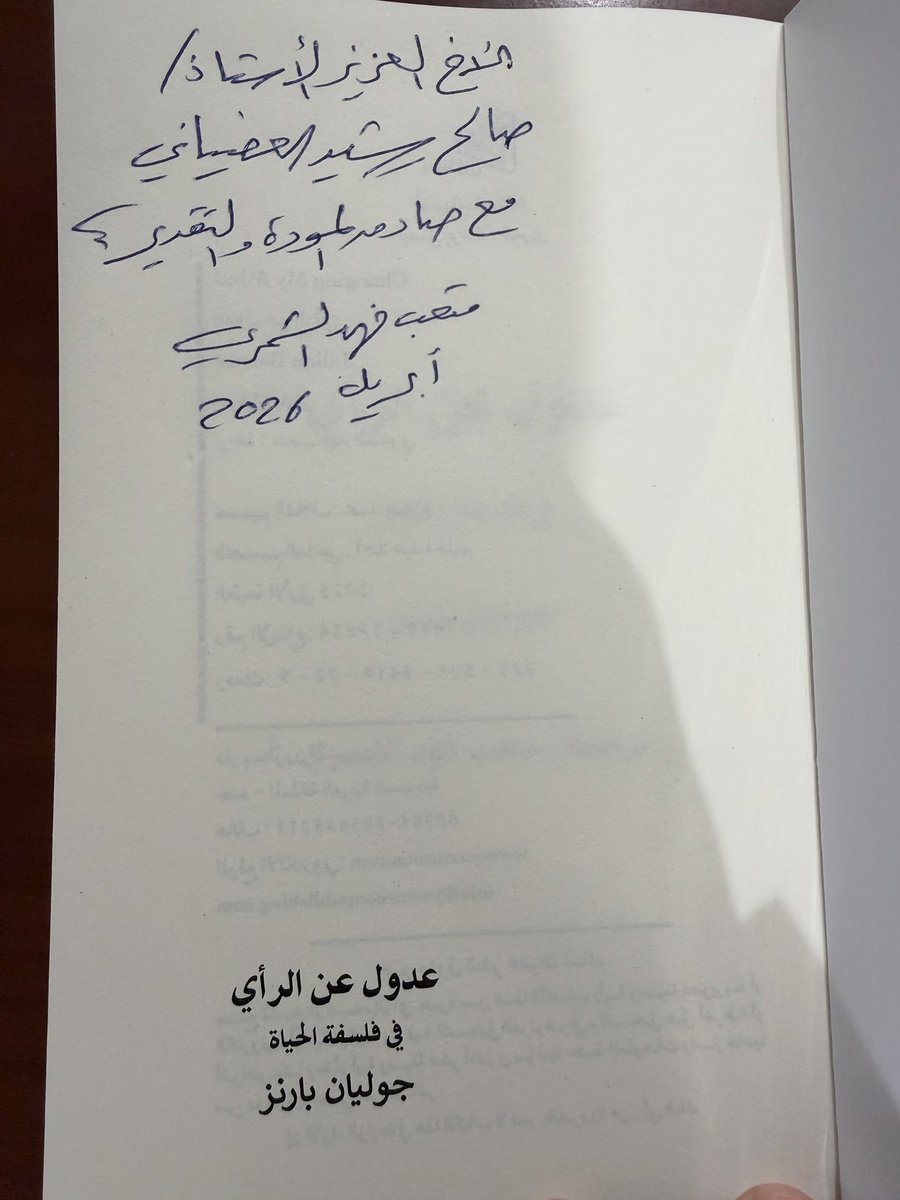 الأخ العزيز الأستاذ/
صالح رشيد العضياني
مع صادق المودة والتقدير،
متعب فهد الشمري
أبريل 2026
عدول عن الرأي
في فلسفة الحياة
جوليان بارنز